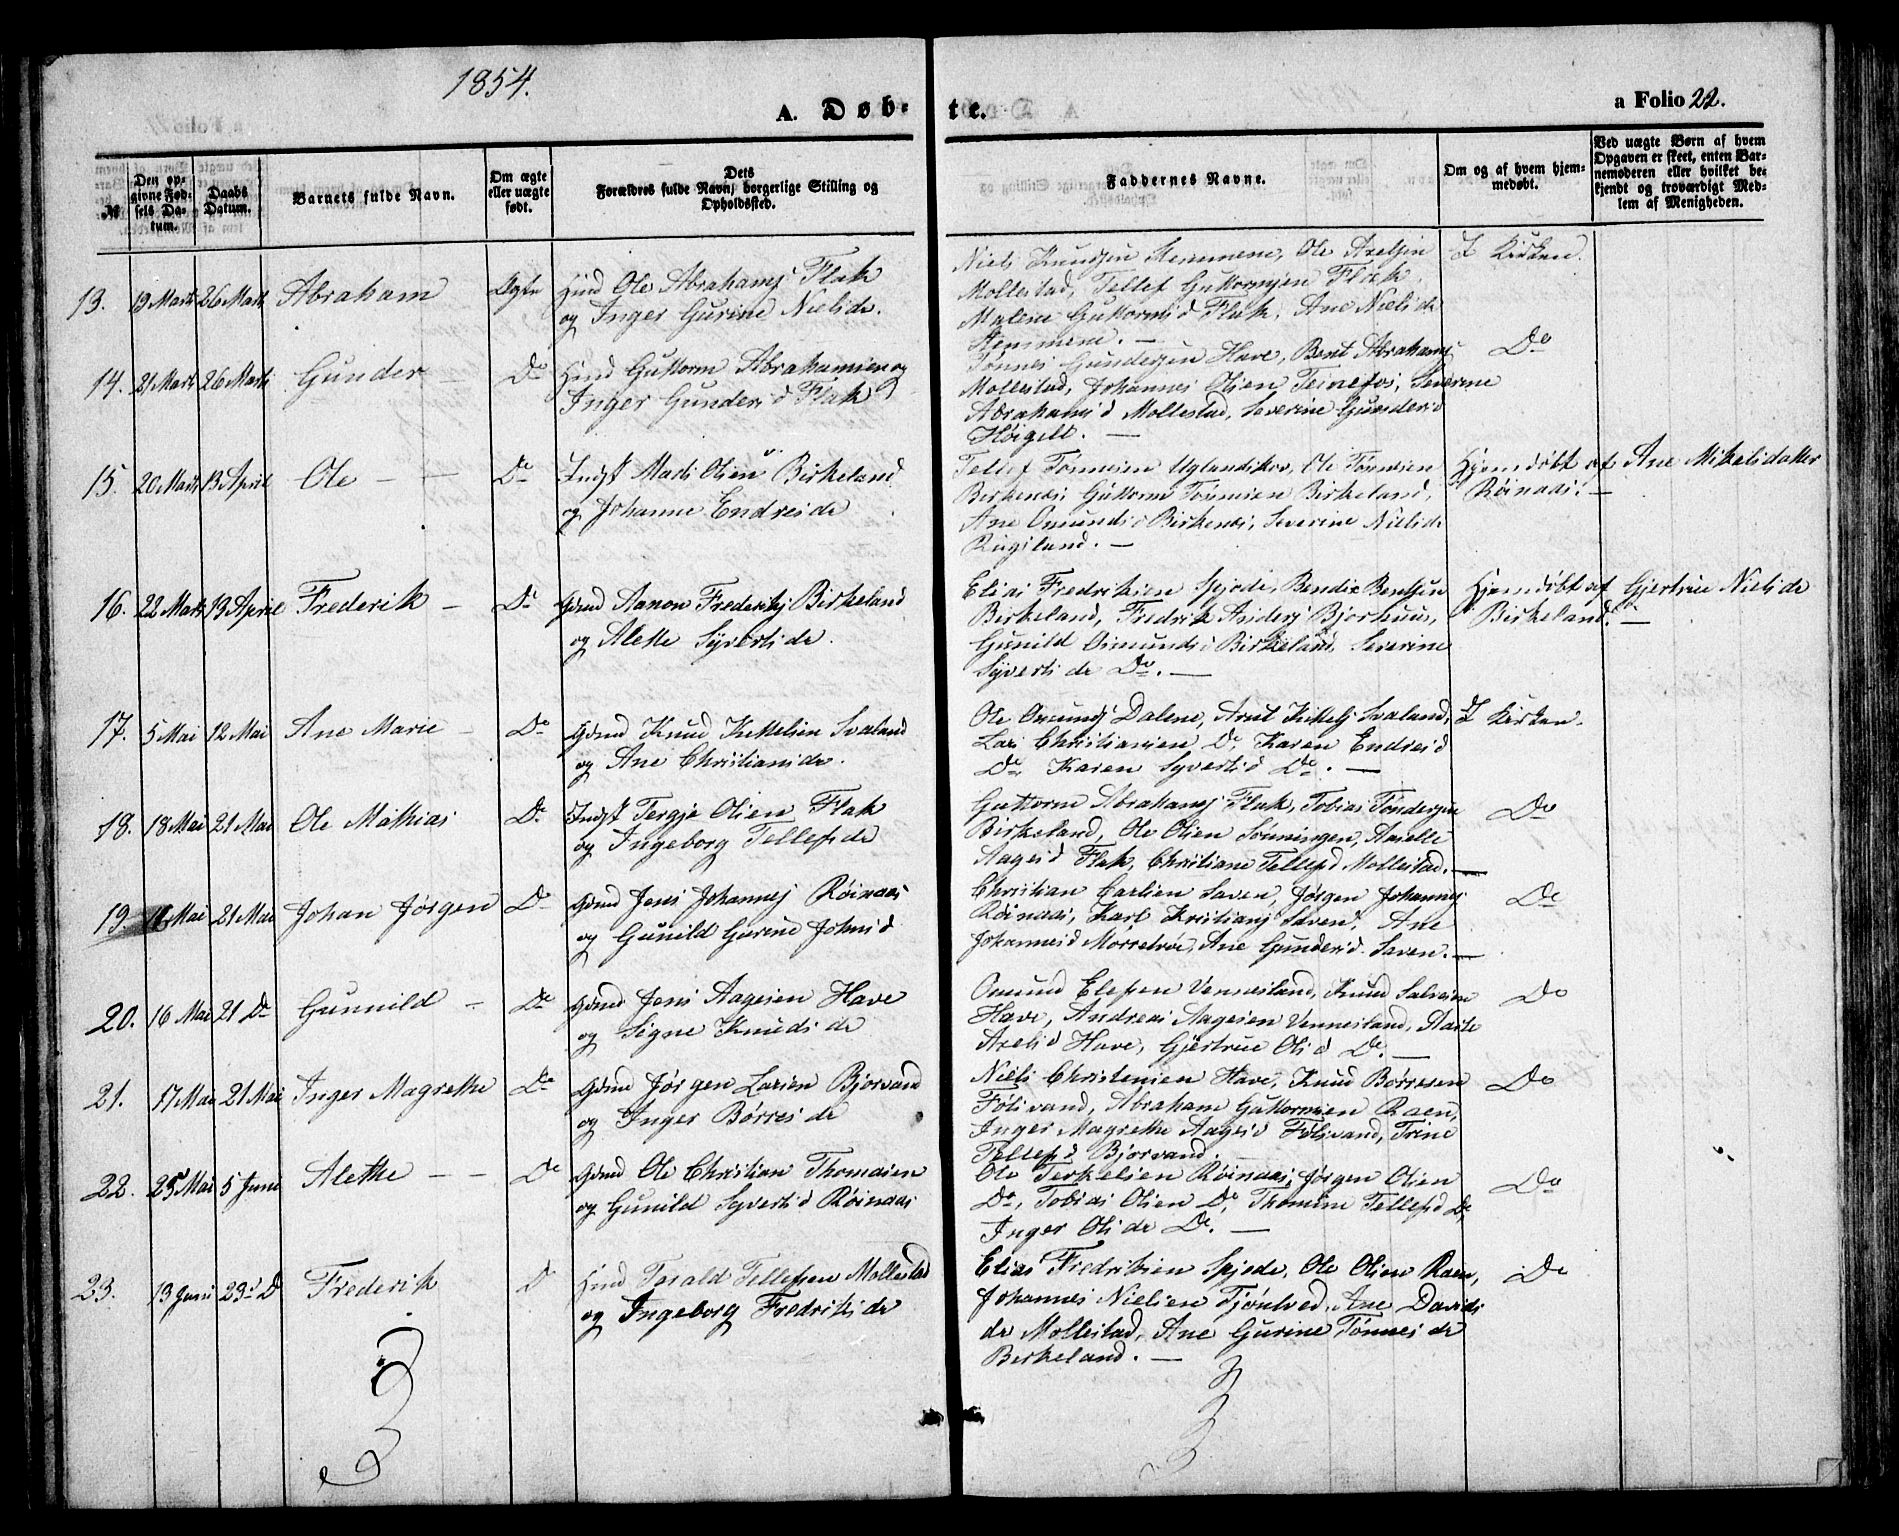 1854.
A. Døb-
te.
a Folio 22.
№
Den op-
givne Fød-
sels Da-
tum.
Daabs
Datum.
Barnets fulde Navn.
Om ægte
eller uægte
født.
Dets
Forældres fulde Navn, borgerlige Stilling og
Opholdssted.
Faddernes Navne.
Om og af hvem hjem-
medøbt.
Ved uægte Børn af hvem
Opgaven er skeet, enten Bar-
nemoderen eller hvilket be-
kjendt og troværdigt Med-
lem af Menigheden.
13. 13 Marts 26 Marts Abraham Ægte Hmd Ole Abrahams Flak
og Inger Gurine Nielsdr.
Niels Knudsen Stemmene, Ole Axelsen
Mollestad, Tellef Guttormsen Flak,
Malene Guttormsd Flak, Ane Nielsdr
Stemmene. —
I Kirken.
14. 21 Marts 26 Marts Gunder — Do Hmd Guttorm Abrahamsen og
Inger Gundersd Flak
Tønnes Gundersen Have, Bent Abrahams
Mollestad, Johannes Olsen Teinefos, Severine
Abrahamsd Mollestad, Severine Gundersd
Høigilt. —
Do
15. 20 Marts 13 April Ole — — Do Indst Mads Olsen Birkeland
og Johanne Endresdr
Tellef Tønnesen Uglandskos, Ole Tønnesen
Birkenes, Guttorm Tønnesen Birkeland,
Ane Omundsd Birkenes, Severine Nielsdr
Rugsland. —
Hjemdøbt af Ane Mikelsdatter
Røinaas. —
16. 22 Marts 13 April Frederik — Do Gdmd Aanon Frederiks Birkeland
og Alette Syvertsdr.
Elias Fredriksen Spjode, Bendix Bentsen
Birkeland, Fredrik Anders Bjorhuus,
Gunild Osmundsd Birkeland, Severine
Syvertsdr Do. —
Hjemdøbt af Gjertrue Nielsdr
Birkeland. —
17. 5 Mai 12 Mai Ane Marie — Do Gdmd Knud Kittelsen Svaland
og Ane Christiansdr.
Ole Omunds Dalene, Arnt Kittels Svaland,
Lars Christiansen Do, Karen Endresd
Do, Karen Syvertsd Do. —
I Kirken.
18. 18 Mai 21 Mai Ole Mathias Do Indst Tergje Olsen Flak
og Ingeborg Tellefsdr
Guttorm Abrahams Flak, Tobias Tøndersen
Birkeland, Ole Olsen Sønningen,
Aagesd Flak, Christiane Tellefsd Mollestad. —
Do
19. Mai 21 Mai Johan Jørgen Do Gdmd Jens Johannes Røinaas
og Gunild Gurine Johnsd
Christian Carlsen Saven, Jørgen Johannes
Røinaas, Karl Kristians Saven, Ane
Johannesd Morretrøe, Ane Gundersd Saven. —
Do
20. 16 Mai 21 Do Gunnild — Do Gdmd Jens Aagesen Have
og Signe Knudsdr
Omund Elefsen Vennesland, Knud Salvesen
Have, Andreas Aagesen Vennesland, Aaste
Axelsd Have, Gjertrue Olsd Do. —
Do
21. 17 Mai 21 Mai Inger Magrethe Do Gdmd Jørgen Larsen Bjorvand
og Inger Børresdr
Niels Christensen Have, Knud Børresen
Følsvand, Abraham Guttormsen Raen,
Inger Magrethe Aagesd Følsvand, Trine
Tellefsd Bjorvand.
Do
22. 25 Mai 5 Juni Alethe — — Do Gdmd Ole Christian Thomasen
og Gunild Syvertsd Røinaas
Ole Terkelsen Røinaas, Jørgen Olsen
Do, Tobias Olsen Do, Thomine Tellefsd Do,
Inger Olsdr Do. —
Do
23. 13 Juni 23 D Frederik D Hmd Torald Tellefsen Mollestad
og Ingeborg Fredriksdr
Elias Fredriksen Spjode, Ole Olsen Raen,
Johannes Nielsen Tjønhved, Ane Davids
dr Mollestad, Ane Gurine Tønnesdr
Birkeland. —
Do